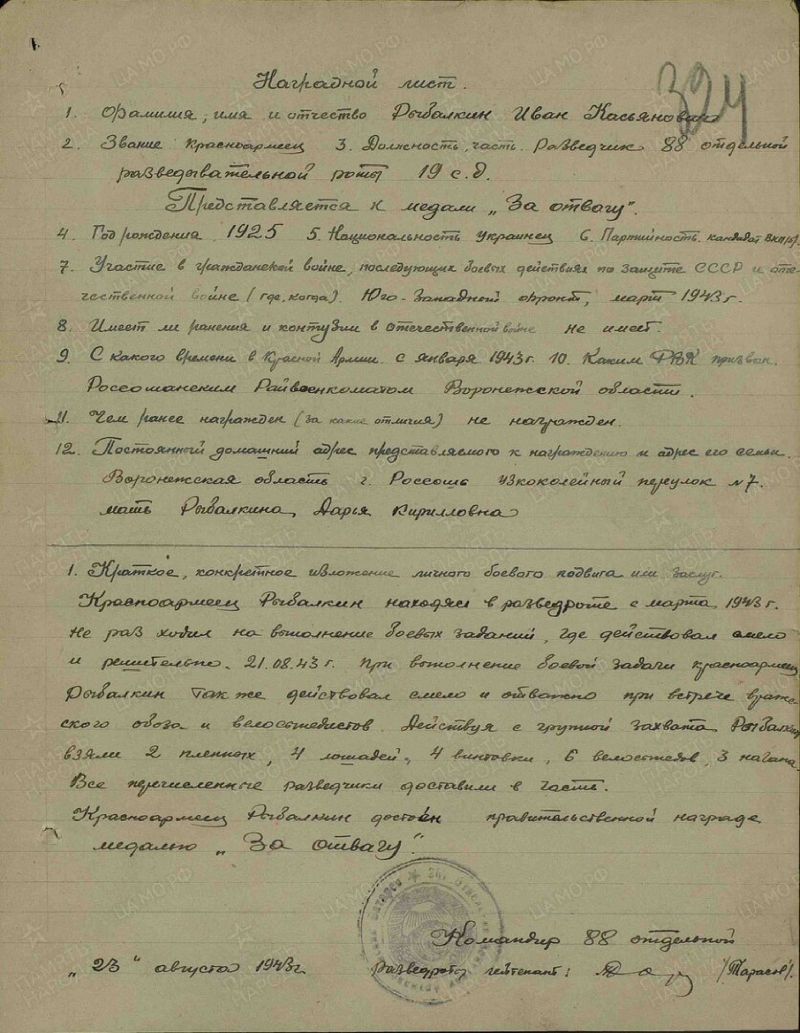 324
Наградной лист.
1. Фамилия, имя и отчество Рыбалкин Иван Касьянович
2. Звание красноармеец 3. Должность, часть разведчик 88 отдельной
разведывательной роты 19 с.д.
Представляется к медали „За отвагу".
4. Год рождения 1925 5. Национальность украинец 6. Партийность кандидат ВКП(б).
7. Участие в гражданской войне, последующих боевых действиях по защите СССР и оте-
чественной войне (где, когда). Юго-Западной фронт, март 1943 г.
8. Имеет ли ранения и контузии в отечественной войне не имеет.
9. С какого времени в Красной Армии с января 1943 г. 10. Каким РВК призван.
Россошанским Райвоенкоматом Воронежской области.
11. Чем ранее награжден (за какие отличия) не награжден.
12. Постоянный домашний адрес представляемого к награждению и адрес его семьи.
Воронежская область г. Россошь узкоколейный переулок №7.
мать Рыбалкина, Дарья Кирилловна
1. Краткое, конкретное изложение личного боевого подвига или заслуг.
Красноармеец Рыбалкин находясь в разведроте с марта 1943 г.
Не раз ходил на выполнение боевых заданий, где действовал смело
и решительно. 21.08.43 г. при выполнение боевой задачи красноармеец
Рыбалкин так же действовал смело и отважно при встрече враже-
ского обоза и велосипедистов. Действуя с группой захвата, Рыбалкин
взяли 2 пленных, 4 лошадей, 4 винтовки, 6 велосипедов, 3 нагана.
Все перечисленные разведчики доставили в часть.
Красноармеец Рыбалкин достоен правительственной награде
медалью „За отвагу".
Командир 88 отдельной
„23" августа 1943 г. разведроты лейтенант: /Тарасов/.